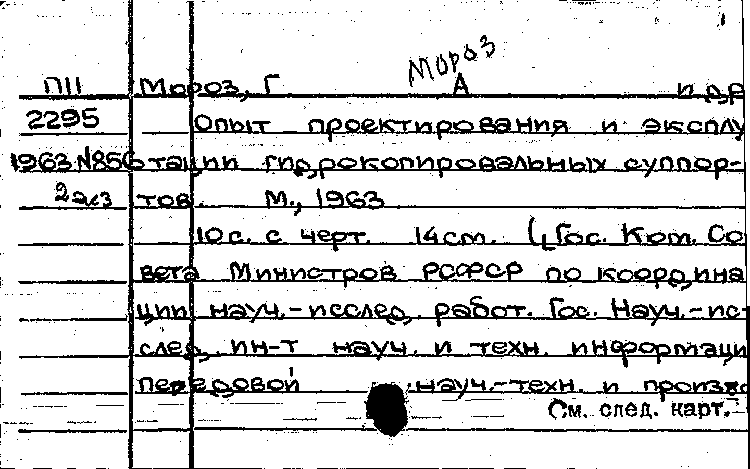 Мороз
П11 Мороз, Г А и др
2295 Опыт проектирования и эксплу
1963 №856 тации гидрокопировальных суппор-
2экз тов. М., 1963
10 с. с черт. 14см. (Гос. Ком. Со
вета Министров РСФСР по координа
ции науч.-исслед. работ. Гос. Науч.-ис-
след. ин-т науч. и техн. информаци
передовой науч.-техн. и произв
См. след. карт.